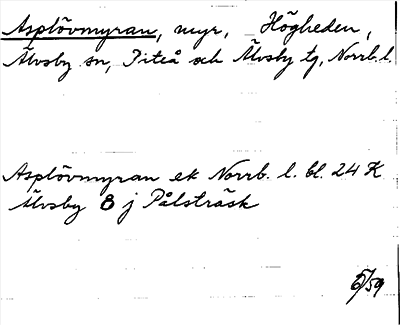 Asplövmyran, myr, Högheden,
Älvsby sn, Piteå och Älvsby tg, Norrb. l.
Asplövmyran ek Norrb. l. bl. 24 K
Älvsby 8 j Pålsträsk
6/59